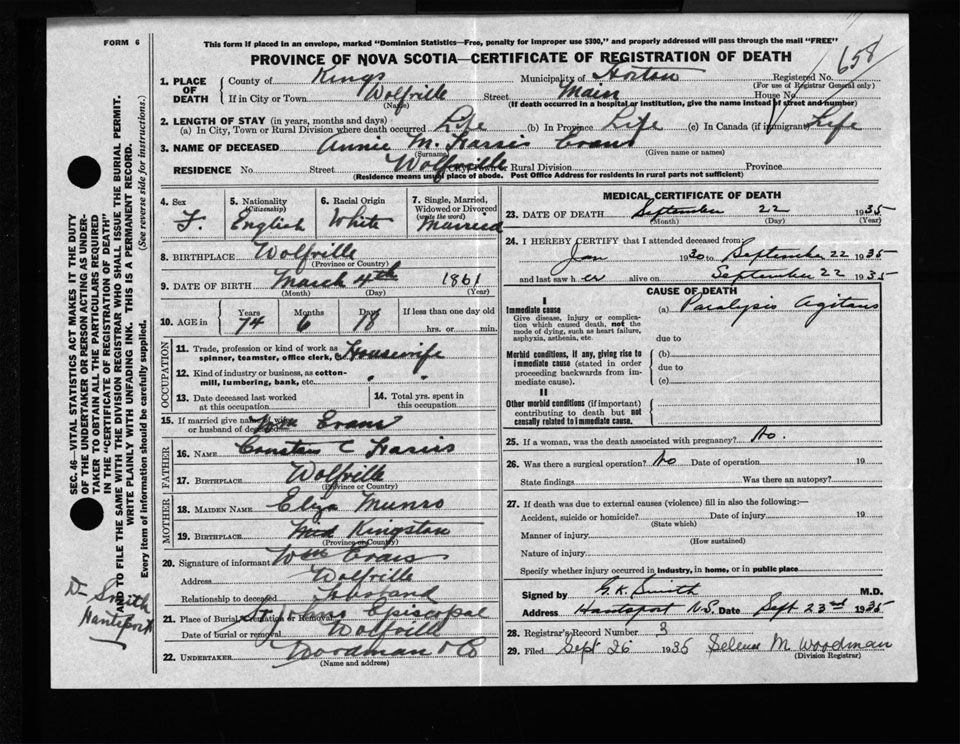 FORM 6
This form if placed in an envelope, marked "Dominion Statistics—Free, penalty for improper use $300," and properly addressed will pass through the mail "FREE"
PROVINCE OF NOVA SCOTIA—CERTIFICATE OF REGISTRATION OF DEATH
658
1. PLACE OF DEATH
County of Kings Municipality of Horton Registered No.
(For use of Registrar General only)
If in City or Town Wolfville Street Main House No.
(Name) (If death occurred in a hospital or institution, give the name instead of street and number)
2. LENGTH OF STAY (in years, months and days)
(a) In City, Town or Rural Division where death occurred Life (b) In Province Life (c) In Canada (if immigrant) Life
3. NAME OF DECEASED Annie M. Harris Evans
(Surname) (Given name or names)
RESIDENCE No. Street Wolfville City, Town or Rural Division Province
(Residence means usual place of abode. Post Office Address for residents in rural parts not sufficient)
4. Sex F.
5. Nationality (Citizenship) English
6. Racial Origin White
7. Single, Married, Widowed or Divorced (write the word) Married
8. BIRTHPLACE Wolfville
(Province or Country)
9. DATE OF BIRTH March 4th 1861
(Month) (Day) (Year)
10. AGE in Years 74 Months 6 Days 18 If less than one day old hrs. or min.
OCCUPATION
11. Trade, profession or kind of work as spinner, teamster, office clerk, Housewife
12. Kind of industry or business, as cotton-mill, lumbering, bank, etc. " "
13. Date deceased last worked at this occupation
14. Total yrs. spent in this occupation
15. If married give name of wife or husband of deceased Wm Evans
FATHER
16. NAME C Harris
17. BIRTHPLACE Wolfville
(Province or Country)
MOTHER
18. MAIDEN NAME Eliza Munro
19. BIRTHPLACE Kingston
(Province or Country)
20. Signature of informant Wm Evans
Address Wolfville
Relationship to deceased Husband
21. Place of Burial, Cremation or Removal St Johns Episcopal
Date of burial or removal Wolfville
22. UNDERTAKER Woodman & Co
(Name and address)
MEDICAL CERTIFICATE OF DEATH
23. DATE OF DEATH September 22 1935
(Month) (Day) (Year)
24. I HEREBY CERTIFY that I attended deceased from
Jan 1930 to September 22 1935
and last saw h er alive on September 22 1935
CAUSE OF DEATH
I
Immediate cause (a) Paralysis Agitans
Give disease, injury or complication which caused death, not the mode of dying, such as heart failure, asphyxia, asthenia, etc. due to
Morbid conditions, if any, giving rise to immediate cause (stated in order proceeding backwards from immediate cause). (b)
due to
(c)
II
Other morbid conditions (if important) contributing to death but not causally related to immediate cause.
25. If a woman, was the death associated with pregnancy? No.
26. Was there a surgical operation? No Date of operation 19
State findings Was there an autopsy?
27. If death was due to external causes (violence) fill in also the following:—
Accident, suicide or homicide? Date of injury 19
(State which)
Manner of injury
(How sustained)
Nature of injury
Specify whether injury occurred in industry, in home, or in public place
Signed by G.K. Smith M.D.
Address Hantsport N.S. Date Sept 23rd 1935
28. Registrar's Record Number 3
29. Filed Sept 26 1935 Selena M. Woodman
(Division Registrar)
SEC. 46—VITAL STATISTICS ACT MAKES IT THE DUTY
OF THE UNDERTAKER OR PERSON ACTING AS UNDER-
TAKER TO OBTAIN ALL THE PARTICULARS REQUIRED
IN THE "CERTIFICATE OF REGISTRATION OF DEATH"
AND TO FILE THE SAME WITH THE DIVISION REGISTRAR WHO SHALL ISSUE THE BURIAL PERMIT.
WRITE PLAINLY WITH UNFADING INK. THIS IS A PERMANENT RECORD.
Every item of information should be carefully supplied. (See reverse side for instructions.)
Dr Smith
Hantsport